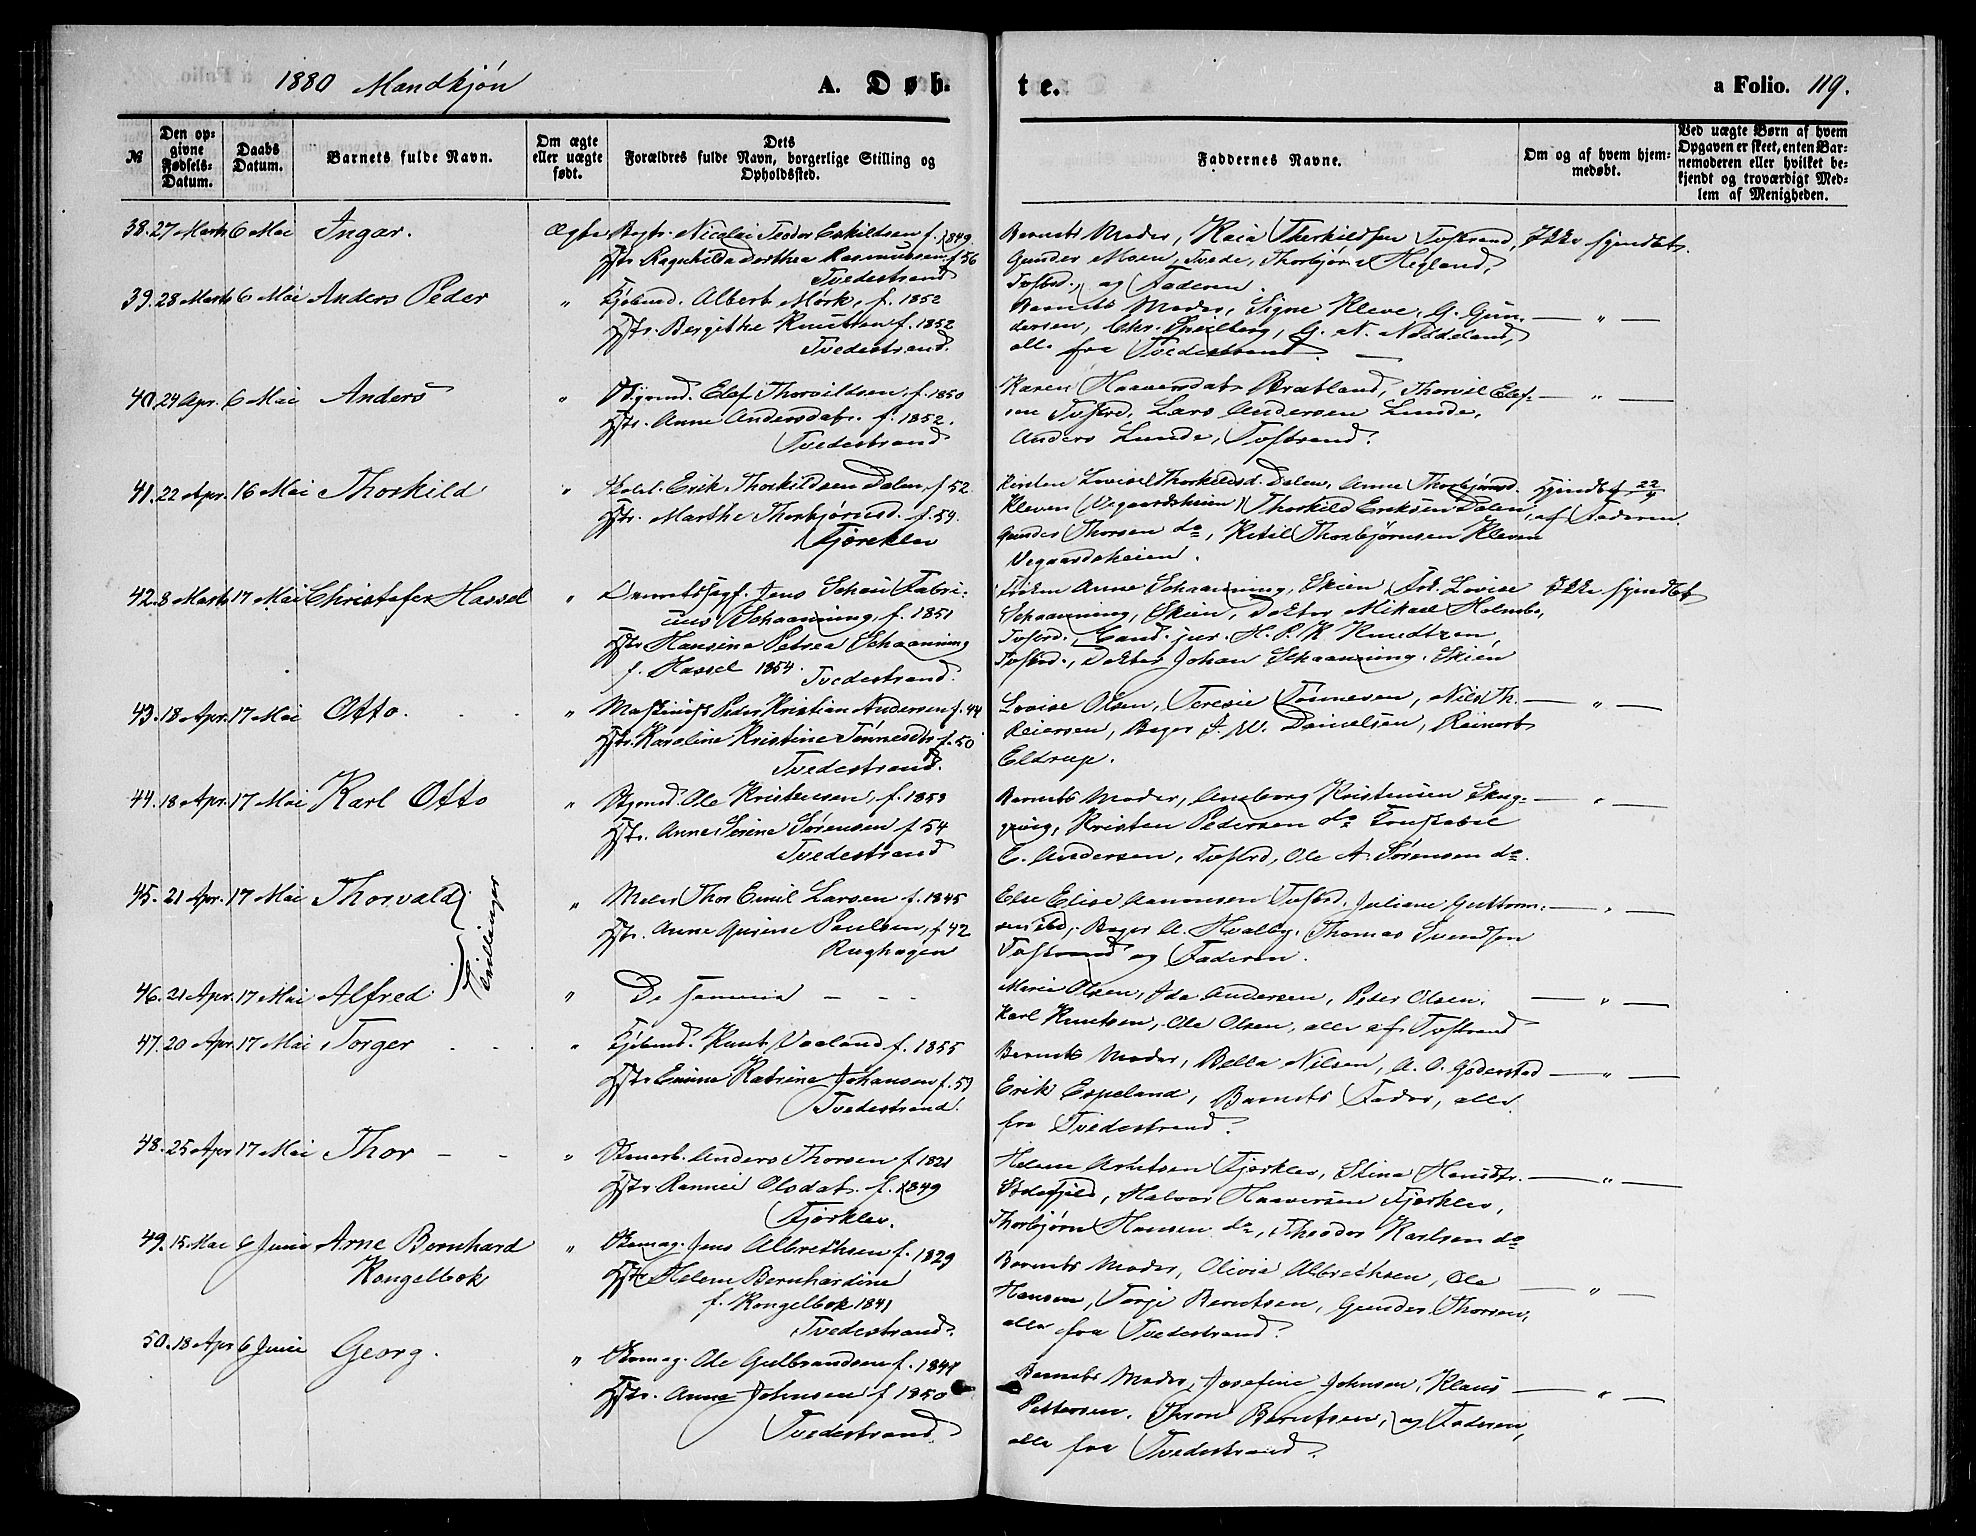 1880 Mandkjøn
A. Døbte.
a Folio. 119.
№
Den op-
givne
Fødsels-
Datum.
Daabs
Datum.
Barnets fulde Navn.
Om ægte
eller uægte
født.
Dets
Forældres fulde Navn, borgerlige Stilling og
Opholdssted.
Faddernes Navne.
Om og af hvem hjem-
medøbt.
Ved uægte Børn af hvem
Opgaven er skeet, enten Bar-
nemoderen eller hvilket be-
kjendt og troværdigt Med-
lem af Menigheden.
38. 27 Marts 6 Mai Ingar. Ægte Nicolai Teodor Eskildsen f. 1849
Hstr. Ragnhilda Dorthea Rasmussen f. 56
Tvedestrand
Barnets Moder, Kaia Therkildsen Tvstrand,
Gunder Moen, Tvede, Thorbjørn Hegland,
Tvstrd., og Faderen.
Ikke hjemdøbt.
39. 28 Marts 6 Mai Anders Peder " Kjøbmd. Albert Mørk, f. 1852
Hstr. Bergithe Knutsen f. 1852
Tvedestrand.
Barnets Moder, Signe Kleve, G. Gun-
dersen, Chr. Speilberg, G. N. Nøddeland,
alle fra Tvedestrand
— " —
40. 24 Apr. 6 Mai Anders " Elef Thorvildsen, f. 1850
Hstr. Anne Andersdatr. f. 1852.
Tvedestrand
Karen Haaversdatr Bratland, Thorvil Elef-
sen Tvstrd. Lars Andersen Lunde,
Anders Lunde, Tvstrand.
— " —
41. 22 Apr. 16 Mai Thorkild " Erik Thorkildsen Dalen, f. 52
Hstr. Marthe Thorbjørnsd. f. 54.
Fjæreklev
Kirsten Lovise Thorkildsd. Dalen, Anne Thorbjørnsd.
Kleven (Vegaardsheien) Thorkild Eriksen Dalen,
Gunder Thorsen do, Ketil Thorbjørnsen Kleven
Vegaardsheien.
Hjemdøbt 22/4
af Faderen.
42. 8 Marts 17 Mai Christofer Hassel " Jens Schau Fabri-
cius Schaanning, f. 1851
Hstr Hansine Petrea Schaanning
f. Hassel 1854. Tvedestrand.
Anne Schaanning, Skien, Frk. Lovise
Schaanning, Skien, Doktor Mikael Holmbo,
Tvstrd., Cand. jur. H. P. K. Knudtzon,
Tvstrd., Doktor Johan Schaanning, Skien
Ikke hjemdøbt
43. 18 Apr. 17 Mai Otto. " Maskinist Peder Kristian Andersen f. 44
Hstr. Karoline Kristine Tønnesdtr f. 50
Tvedestrand.
Lovise Olsen, Teresie Tønnesen, Nils Th.
Reiersen, Bager J. W. Danielsen, Reinert
Eldrup.
— " —
44. 18 Apr. 17 Mai Karl Otto " Ole Kristensen, f. 1853
Hstr. Anne Sørine Sørensen f 54
Tvedestrand
Barnets Moder, Aneborg Kristensen Skog-
gvig, Kristen Pedersen do Konstabel
C. Andersen, Tvstrd, Ole A. Sørensen do.
— " —
45. 21 Apr. 17 Mai Thorvald } Tvillinger " Maler Thor Emil Larsen f. 1845
Hstr. Anne Gurine Paulsen, f 42
Rughagen
Else Elise Aanonsen Tvstrd, Juliane Guttorm-
sen ibd., Bager A. Hvalby, Thomas Svendsen
Tvstrand og Faderen.
— " —
46. 21 Apr. 17 Mai Alfred " De samme — - -
Marie Olsen, Ida Andersen, Peder Olsen,
Karl Knutsen, Ole Olsen, alle af Tvstrand
— " —
47. 20 Apr. 17 Mai Torger - - " Kjøbmd. Knut Vaaland f. 1855
Hstr Emine Katrine Johansen f. 59
Tvedestrand.
Barnets Moder, Bella Nilsen, A. O. Goderstad
Erik Espeland, Barnets Fader, alle
fra Tvedestrand.
— " —
48. 25 Apr 17 Mai Thor - - " Anders Thorsen f. 1821
Hstr Rannei Olsdatr. f. 1849
Fjærklev.
Helene Arntsen Fjærklev, Stina Hansdtr.
Halvor Haaversen Fjærklev,
Thorbjørn Hansen do, Theodor Karlsen do
— " —
49. 15 Mai 6 Juni Arne Bernhard
Kongelbek
" Skomag. Jens Albrethsen f. 1829
Hstr Helene Bernhardine
f. Kongelbek 1841
Tvedestrand.
Barnets Moder, Olivia Albrechsen, Ole
Hansen, Torje Berntsen, Gunder Thorsen,
alle fra Tvedestrand.
— " —
50. 18 Apr 6 Juni Georg. " Skomag. Ole Gulbrandsen f. 1844
Hstr. Anna Johnsen f 1850
Tvedestrand.
Barnets Moder, Josefine Johnsen, Klaus
Pettersen, Thron Berntsen, og Faderen,
alle fra Tvedestrand.
— " —